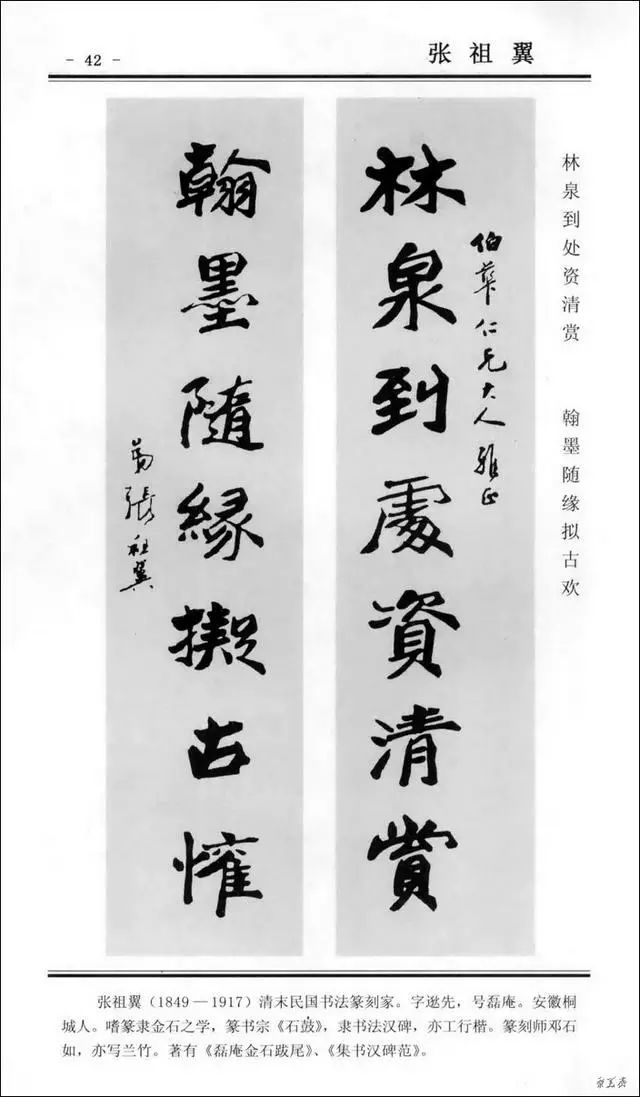 - 42 -
张祖翼
林泉到处资清赏 翰墨随缘拟古欢
伯華仁兄大人雅正
林泉到處資清賞
翰墨隨緣擬古懽
弟張祖翼
张祖翼(1849—1917)清末民国书法篆刻家。字逖先,号磊庵。安徽桐
城人。嗜篆隶金石之学,篆书宗《石鼓》,隶书法汉碑,亦工行楷。篆刻师邓石
如,亦写兰竹。著有《磊庵金石跋尾》、《集书汉碑范》。